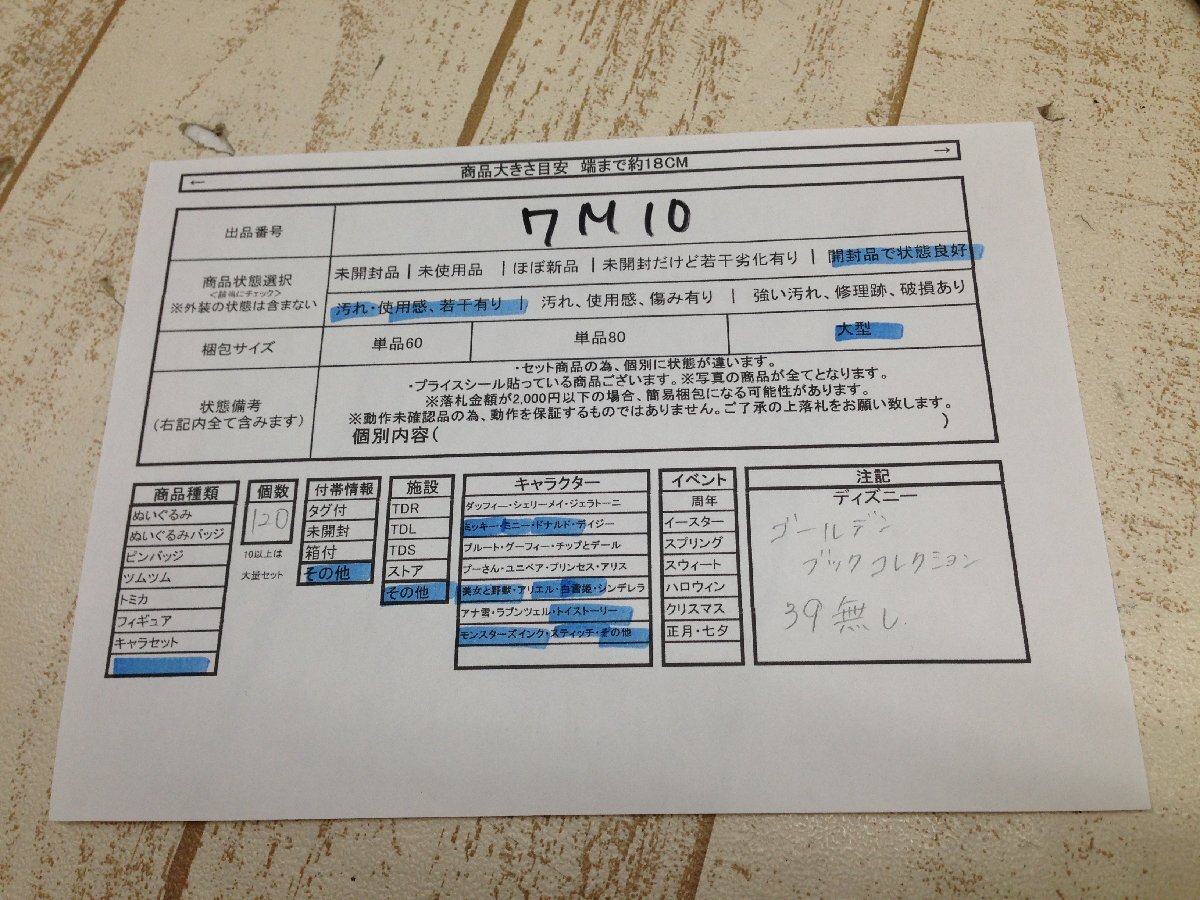 ← 商品大きさ目安 端まで約18CM →
出品番号 7M10
商品状態選択
<該当にチェック>
※外装の状態は含まない
未開封品 | 未使用品 | ほぼ新品 | 未開封だけど若干劣化有り | 開封品で状態良好
汚れ・使用感、若干有り | 汚れ、使用感、傷み有り | 強い汚れ、修理跡、破損あり
梱包サイズ 単品60 単品80 大型
状態備考
(右記内全て含みます)
・セット商品の為、個別に状態が違います。
・プライスシール貼っている商品ございます。※写真の商品が全てとなります。
※落札金額が2,000円以下の場合、簡易梱包になる可能性があります。
※動作未確認品の為、動作を保証するものではありません。ご了承の上落札をお願い致します。
個別内容( )
商品種類
ぬいぐるみ
ぬいぐるみバッジ
ピンバッジ
ツムツム
トミカ
フィギュア
キャラセット
個数
120
10以上は
大量セット
付帯情報
タグ付
未開封
箱付
その他
施設
TDR
TDL
TDS
ストア
その他
キャラクター
ダッフィー・シェリーメイ・ジェラトーニ
ミッキー・ミニー・ドナルド・デイジー
プルート・グーフィー・チップとデール
プーさん・ユニベア・プリンセス・アリス
美女と野獣・アリエル・白雪姫・シンデレラ
アナ雪・ラプンツェル・トイストーリー
モンスターズインク・スティッチ・その他
イベント
周年
イースター
スプリング
スウィート
ハロウィン
クリスマス
正月・七夕
注記
ディズニー
ゴールデン
ブックコレクション
39無し